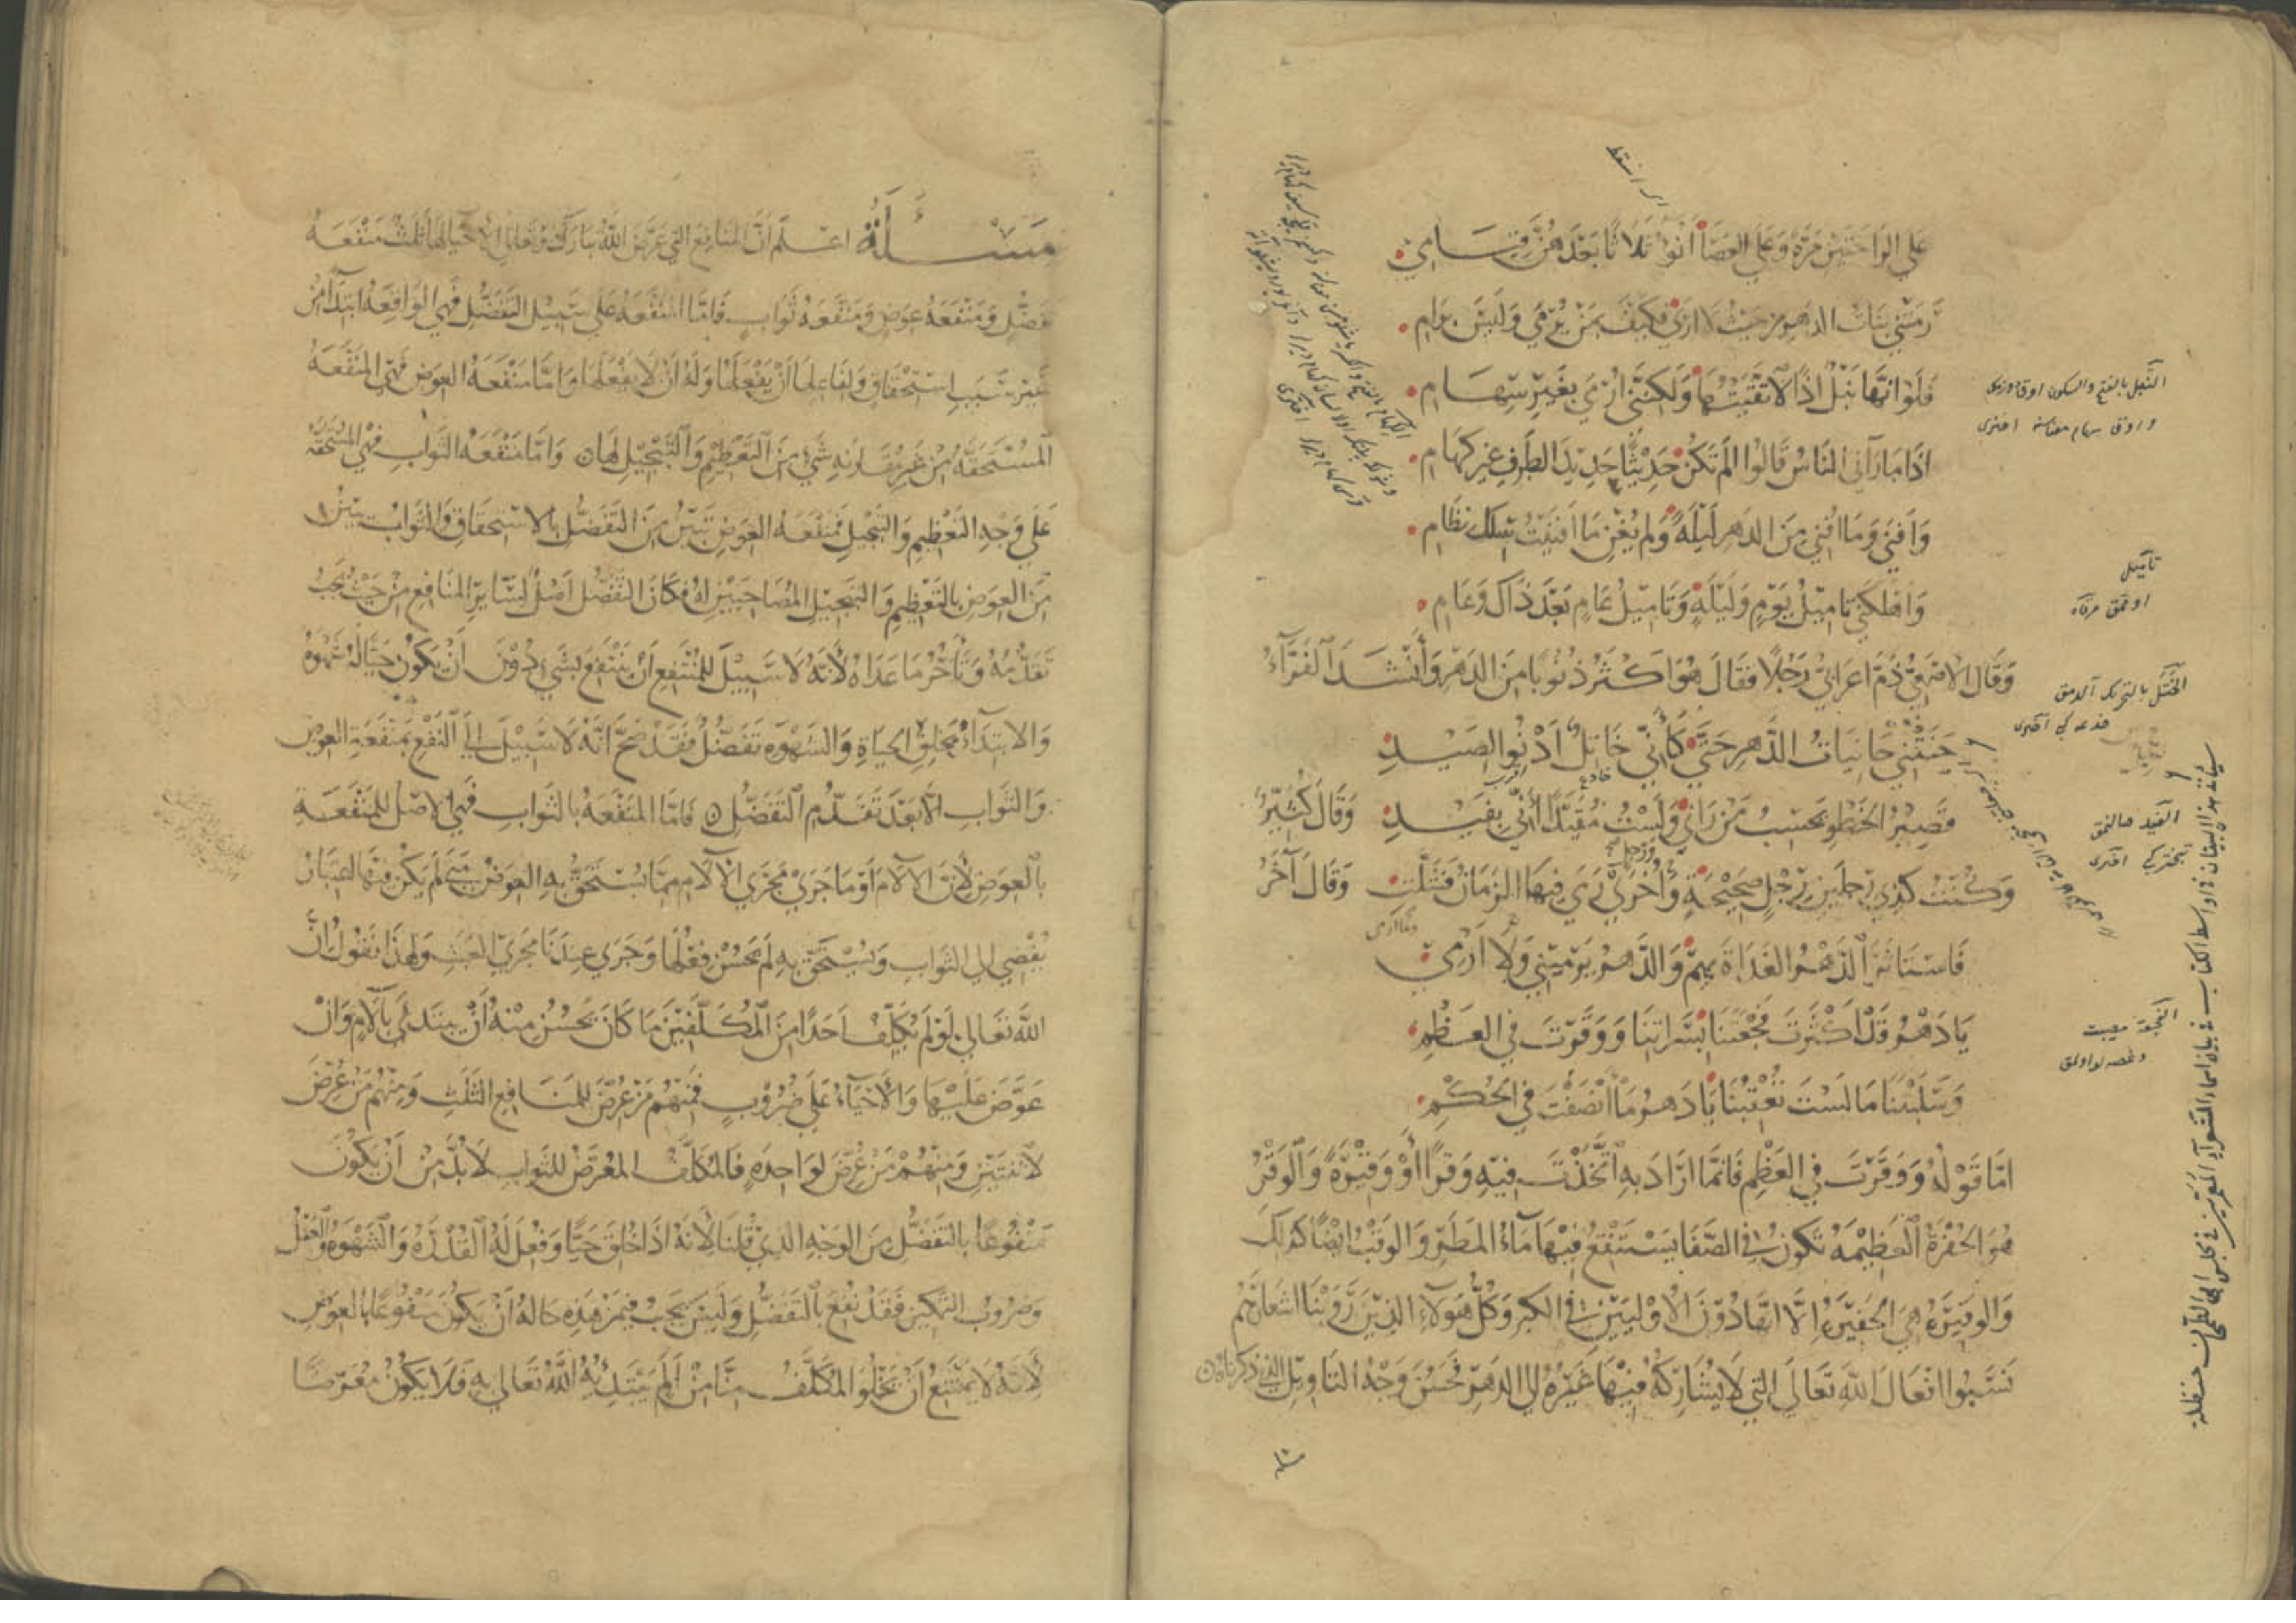 على الراحتين مرة وعلى العصا أنوء ثلاثا بعدهن قيامي
رمتني بنات الدهر من حيث لا ارى فكيف بمن يرمى وليس برام
فلو انها نبل اذا لاتقيتها ولكنني ارمى بغير سهام
اذا ما رآني الناس قالوا الم تكن حديثا حديد الطرف غير كهام
وافنى وما افني من الدهر ليلة ولم يغن ما افنيت سلك نظام
واهلكني تاميل يوم وليلة وتاميل عام بعد ذاك وعام
وقال الاصمعي ذم اعرابي رجلا فقال هو اكثر ذنوبا من الدهر وأنشد الفراء
حنتني حانيات الدهر حتى كأني خاتل أدنو الصيد
قصير الخطو يحسب من رآني ولست مقيدا أني بقيد وقال كثير
وكنت كذي رجلين رجل صحيحة وأخرى رمى فيها الزمان فشلت وقال آخر
فاستاثر الدهر الغداة بهم والدهر يرميني ولا ارمي
يا دهر قد اكثرت فجعتنا بسراتنا ووقرت في العظم
وسلبتنا ما لست تعقبنا يا دهر ما أنصفت في الحكم
اما قوله ووقرت في العظم فانما اراد به اتخذت فيه وقرا أو وقيرة والوقر
هو الحفرة العظيمة تكون في الصفا يستنقع فيها ماء المطر والوقب ايضا كذلك
والوقيرة هي الحفيرة إلا انها دون الاوليين في الكبر وكل هؤلاء الذين روينا اشعارهم
نسبوا افعال الله تعالى التي لا يشاركه فيها غيره الى الدهر فحسن وجه التاويل الذي ذكرناه
النبل بالفتح والسكون
تأميل
الختل بالتحريك
القيد
الفجعة مصيبت
خادع
مسئلة اعلم ان المنافع التي عرض الله تبارك وتعالى الاحياء لها ثلث منفعة
تفضل ومنفعة عوض ومنفعة ثواب فاما المنفعة على سبيل التفضل فهي الواقعة ابتدآء من
غير سبب استحقاق ولفاعلها أن يفعلها وله ان لا يفعلها واما منفعة العوض فهي المنفعة
المستحقة من غير مقارنة شيء من التعظيم والتبجيل لها واما منفعة الثواب فهي المستحقة
على وجه التعظيم والتبجيل فمنفعة العوض تبين من التفضل بالاستحقاق والثواب يبين
من العوض بالتعظيم والتبجيل المصاحبين له فكان التفضل اصل لسائر المنافع من حيث يجب
تقدمه وتأخر ما عداه لأنه لا سبيل للمنتفع أن ينتفع بشيء دون أن يكون حيا له شهوة
والابتداء بخلق الحياة والشهوة تفضل فقد صح انه لا سبيل الى النفع بمنفعة العوض
والثواب الا بعد تقدم التفضل فاما المنفعة بالثواب فهي الاصل للمنفعة
بالعوض لأن الآلام وما جرى مجرى الآلام مما يستحق به العوض متى لم يكن فيها اعتبار
يفضي الى الثواب ويستحق به لم يحسن فعلها وجرى عندنا مجرى العبث ولهذا نقول ان
الله تعالى لو لم يكلف احدا من المكلفين ما كان يحسن منه أن يبتدئ بالآلام وان
عوض عليها والأحياء على ضروب فمنهم من عرض للمنافع الثلث ومنهم من عرض
لاثنتين ومنهم من عرض لواحدة فالمكلف المعرض للثواب لا بد من أن يكون
منفوعا بالتفضل من الوجه الذي قلنا لأنه اذا خلق حيا وفعل له القدرة والشهوة والعقل
وضروب التمكين فقد نفع بالتفضل وليس يجب فيمن هذه حاله أن يكون منفوعا بالعوض
لأنه لا يمتنع أن يخلو المكلف منا من ألم يبتدئه الله تعالى به فلا يكون معوضا